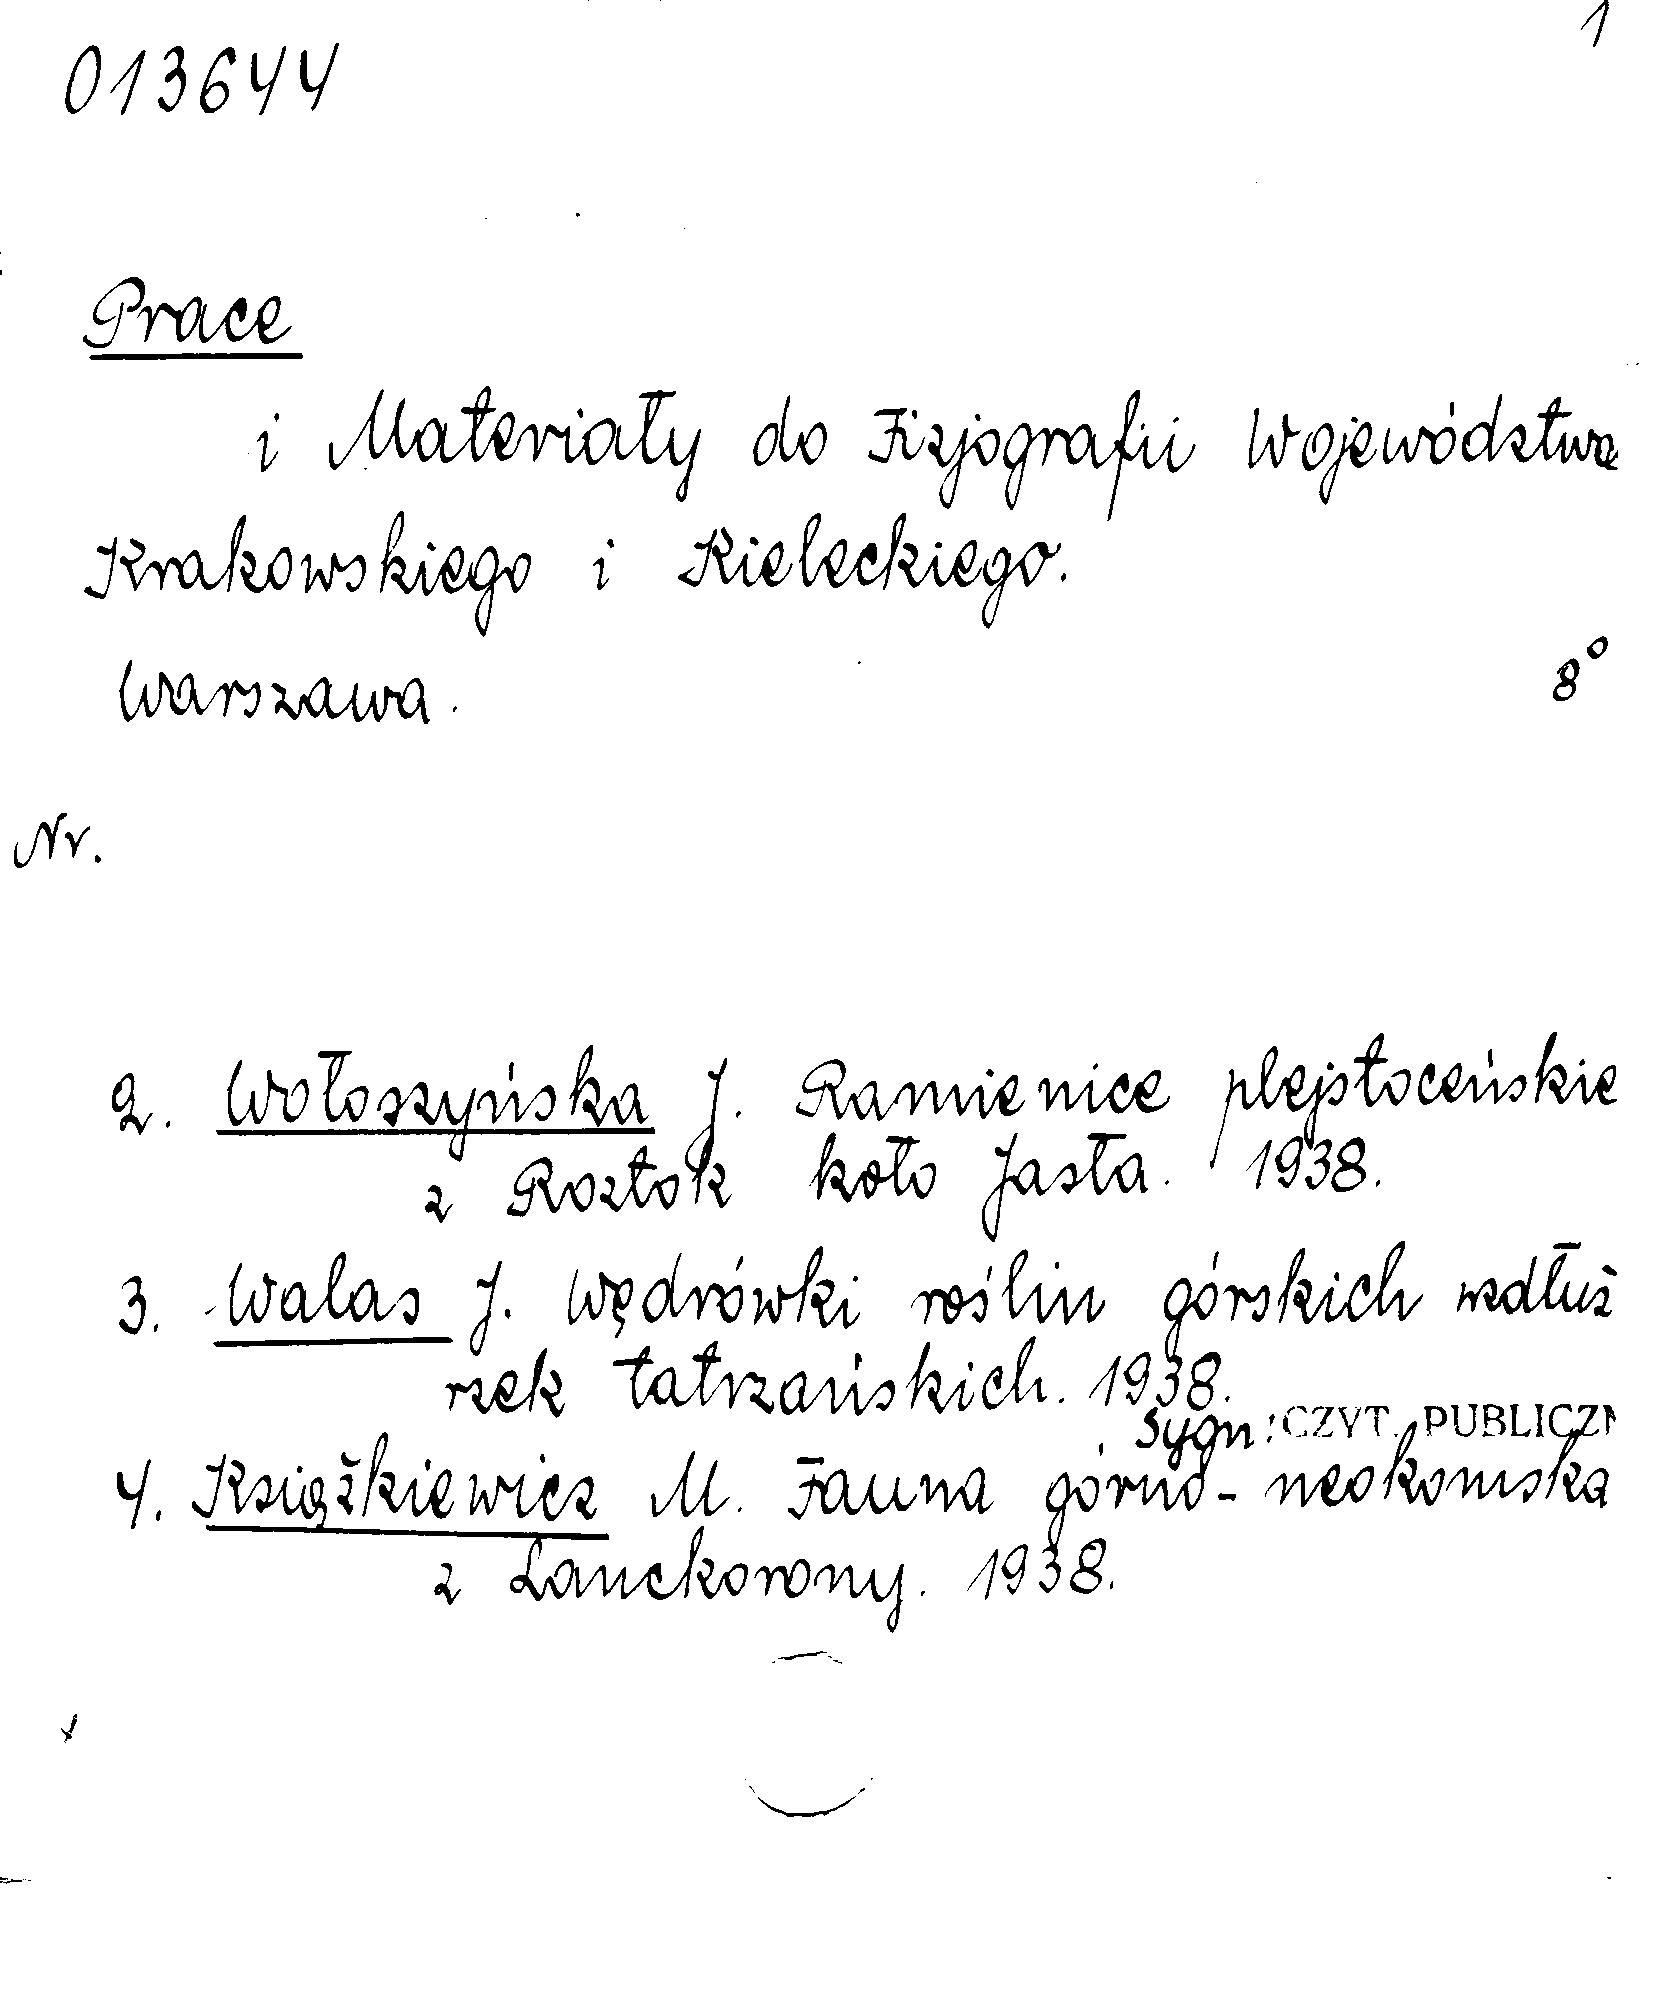 1
013644
Prace
i Materiały do Fizjografii Województwa
Krakowskiego i Kieleckiego.
Warszawa.
8°
Nr.
2. Wołoszyńska J. Ramienice plejstoceńskie
z Roztok koło Jasła. 1938.
3. Walas J. Wędrówki roślin górskich wzdłuż
rzek tatrzańskich. 1938.
Sygn: CZYT. PUBLICZN
4. Książkiewicz M. Fauna górno-neokomska
z Lanckorony. 1938.